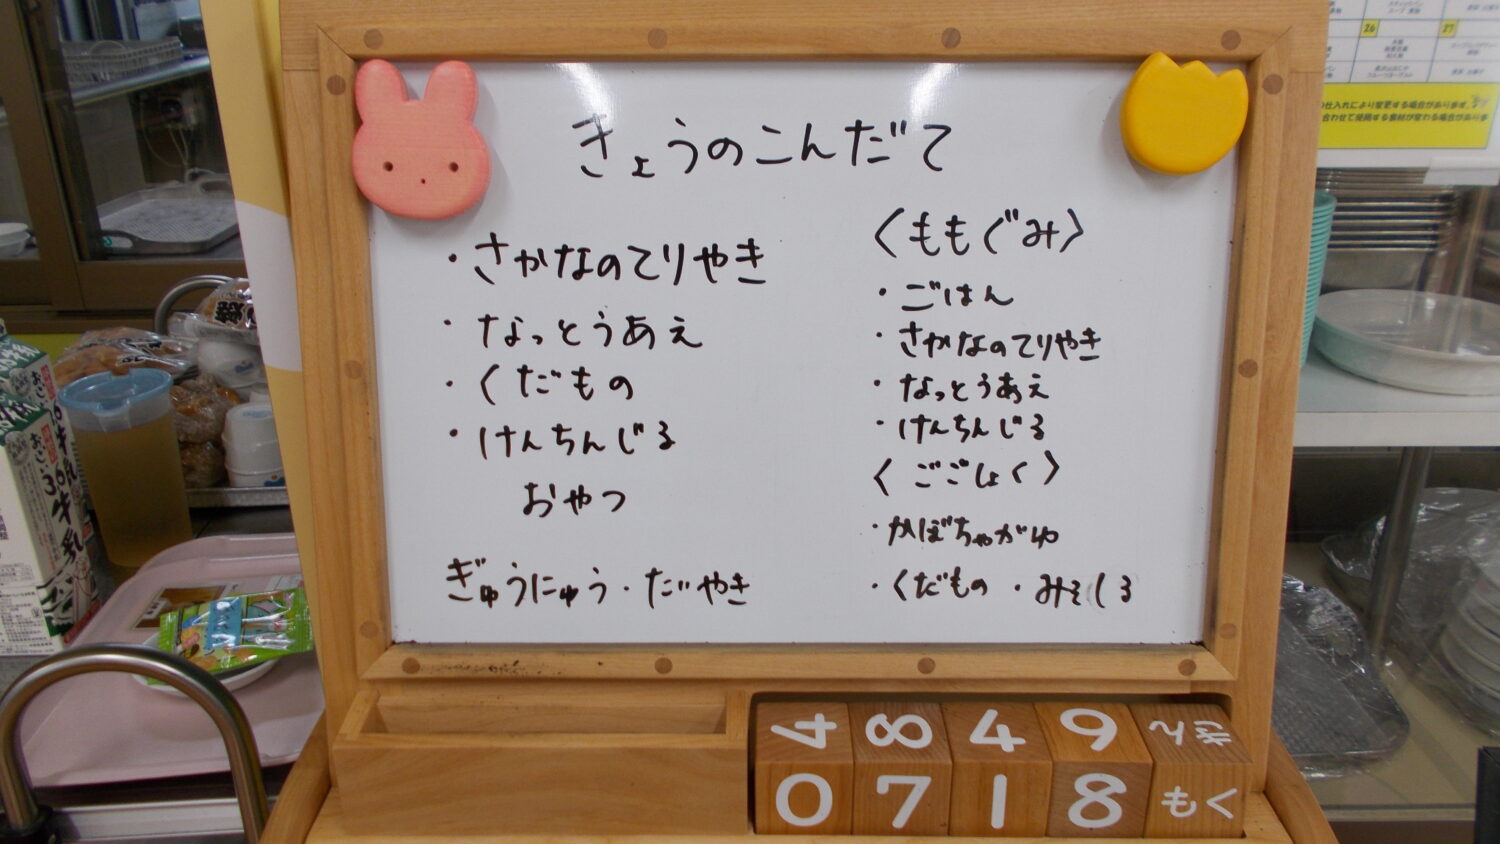 きょうのこんだて
・さかなのてりやき
・なっとうあえ
・くだもの
・けんちんじる
おやつ
ぎゅうにゅう・たいやき
〈ももぐみ〉
・ごはん
・さかなのてりやき
・なっとうあえ
・けんちんじる
〈ごごしょく〉
・かぼちゃがゆ
・くだもの ・みそしる
4 8 4 9 きん
0 7 1 8 もく
26 27
の仕入れにより変更する場合があります。
合わせて使用する食材が変わる場合があります
おいしい
3.6牛乳